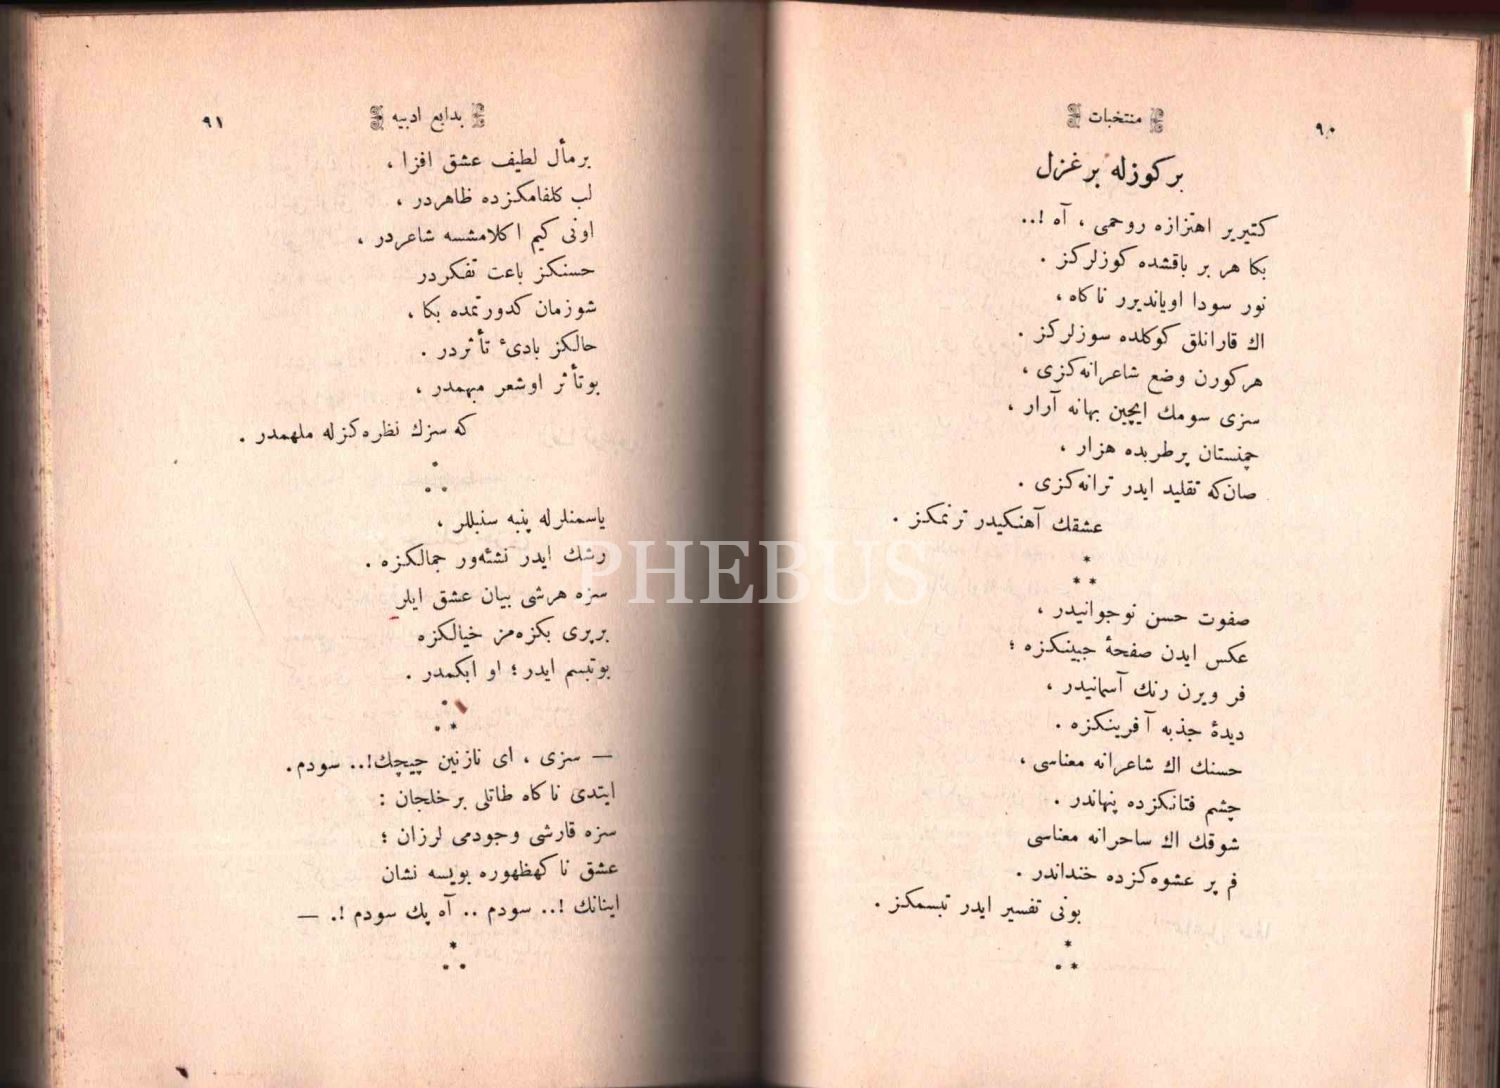 ٩٠
منتخبات
بر كوزله بر غزل
كتيرير اهتزازه روحمى ، آه !..
بكا هر بر باقشده كوزلركز .
نور سودا اويانديرر ناكاه ،
اك قارانلق كوكلده سوزلركز .
هر كورن وضع شاعرانه‌كزى ،
سزى سومك ايچين بهانه آرار ،
چمنستان پرطربده هزار ،
صان‌كه تقليد ايدر ترانه‌كزى .
عشقك آهنكيدر ترنمكز .
*
* *
صفوت حسن نوجوانيدر ،
عكس ايدن صفحۀ جبينكزه ؛
فر ويرن رنك آسمانيدر ،
ديدۀ جذبه آفرينكزه .
حسنك اك شاعرانه معناسى ،
چشم فتانكزده پنهاندر .
شوقك اك ساحرانه معناسى
فم پر عشوه‌كزده خنداندر .
بونى تفسير ايدر تبسمكز .
*
* *
٩١
بدايع ادبيه
بر مأل لطيف عشق افزا ،
لب كلفامكزده ظاهردر ،
اونى كيم اكلامشسه شاعردر ،
حسنكز باعث تفكردر
شوزمان كدورتمده بكا ،
حالكز بادئ تأثردر .
بوتأثر اوشعر مبهمدر ،
كه سزك نظره‌كزله ملهمدر .
*
* *
ياسمنلرله پنبه سنبللر ،
رشك ايدر نشئه‌ور جمالكزه .
سزه هرشى بيان عشق ايلر
بر پرى بكزه‌مز خيالكزه
بوتبسم ايدر ؛ او ابكمدر .
*
* *
— سزى ، اى نازنين چيچك!.. سودم .
ايتدى ناكاه طاتلى بر خلجان :
سزه قارشى وجودمى لرزان ؛
عشق ناكهظهوره بويسه نشان
اينانك !.. سودم .. آه پك سودم !. —
*
* *
PHEBUS